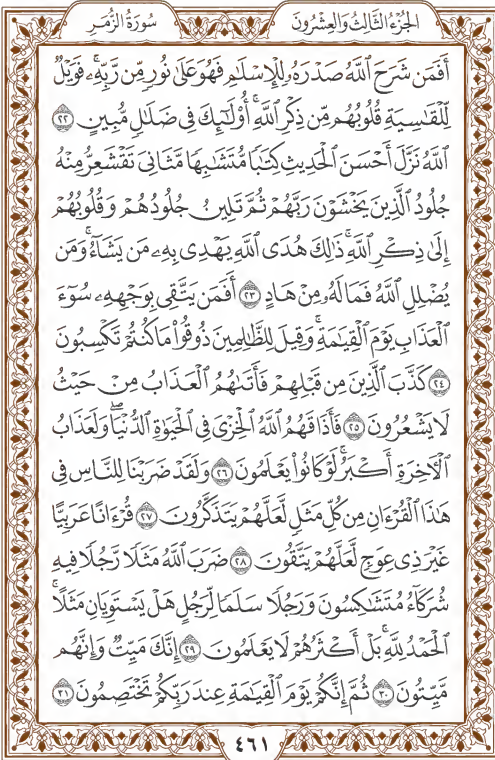 سُورَةُ الزُّمَر
الجُزْءُ الثَّالِثُ وَالعِشْرُونَ
أَفَمَن شَرَحَ ٱللَّهُ صَدْرَهُۥ لِلْإِسْلَٰمِ فَهُوَ عَلَىٰ نُورٍ مِّن رَّبِّهِۦۚ فَوَيْلٌ
لِّلْقَٰسِيَةِ قُلُوبُهُم مِّن ذِكْرِ ٱللَّهِۚ أُو۟لَٰٓئِكَ فِى ضَلَٰلٍ مُّبِينٍ ٢٢
ٱللَّهُ نَزَّلَ أَحْسَنَ ٱلْحَدِيثِ كِتَٰبًا مُّتَشَٰبِهًا مَّثَانِىَ تَقْشَعِرُّ مِنْهُ
جُلُودُ ٱلَّذِينَ يَخْشَوْنَ رَبَّهُمْ ثُمَّ تَلِينُ جُلُودُهُمْ وَقُلُوبُهُمْ
إِلَىٰ ذِكْرِ ٱللَّهِۚ ذَٰلِكَ هُدَى ٱللَّهِ يَهْدِى بِهِۦ مَن يَشَآءُۚ وَمَن
يُضْلِلِ ٱللَّهُ فَمَا لَهُۥ مِنْ هَادٍ ٢٣ أَفَمَن يَتَّقِى بِوَجْهِهِۦ سُوٓءَ
ٱلْعَذَابِ يَوْمَ ٱلْقِيَٰمَةِۚ وَقِيلَ لِلظَّٰلِمِينَ ذُوقُوا۟ مَا كُنتُمْ تَكْسِبُونَ
٢٤ كَذَّبَ ٱلَّذِينَ مِن قَبْلِهِمْ فَأَتَىٰهُمُ ٱلْعَذَابُ مِنْ حَيْثُ
لَا يَشْعُرُونَ ٢٥ فَأَذَاقَهُمُ ٱللَّهُ ٱلْخِزْىَ فِى ٱلْحَيَوٰةِ ٱلدُّنْيَاۖ وَلَعَذَابُ
ٱلْءَاخِرَةِ أَكْبَرُۚ لَوْ كَانُوا۟ يَعْلَمُونَ ٢٦ وَلَقَدْ ضَرَبْنَا لِلنَّاسِ فِى
هَٰذَا ٱلْقُرْءَانِ مِن كُلِّ مَثَلٍ لَّعَلَّهُمْ يَتَذَكَّرُونَ ٢٧ قُرْءَانًا عَرَبِيًّا
غَيْرَ ذِى عِوَجٍ لَّعَلَّهُمْ يَتَّقُونَ ٢٨ ضَرَبَ ٱللَّهُ مَثَلًا رَّجُلًا فِيهِ
شُرَكَآءُ مُتَشَٰكِسُونَ وَرَجُلًا سَلَمًا لِّرَجُلٍ هَلْ يَسْتَوِيَانِ مَثَلًاۚ
ٱلْحَمْدُ لِلَّهِۚ بَلْ أَكْثَرُهُمْ لَا يَعْلَمُونَ ٢٩ إِنَّكَ مَيِّتٌ وَإِنَّهُم
مَّيِّتُونَ ٣٠ ثُمَّ إِنَّكُمْ يَوْمَ ٱلْقِيَٰمَةِ عِندَ رَبِّكُمْ تَخْتَصِمُونَ ٣١
٤٦١